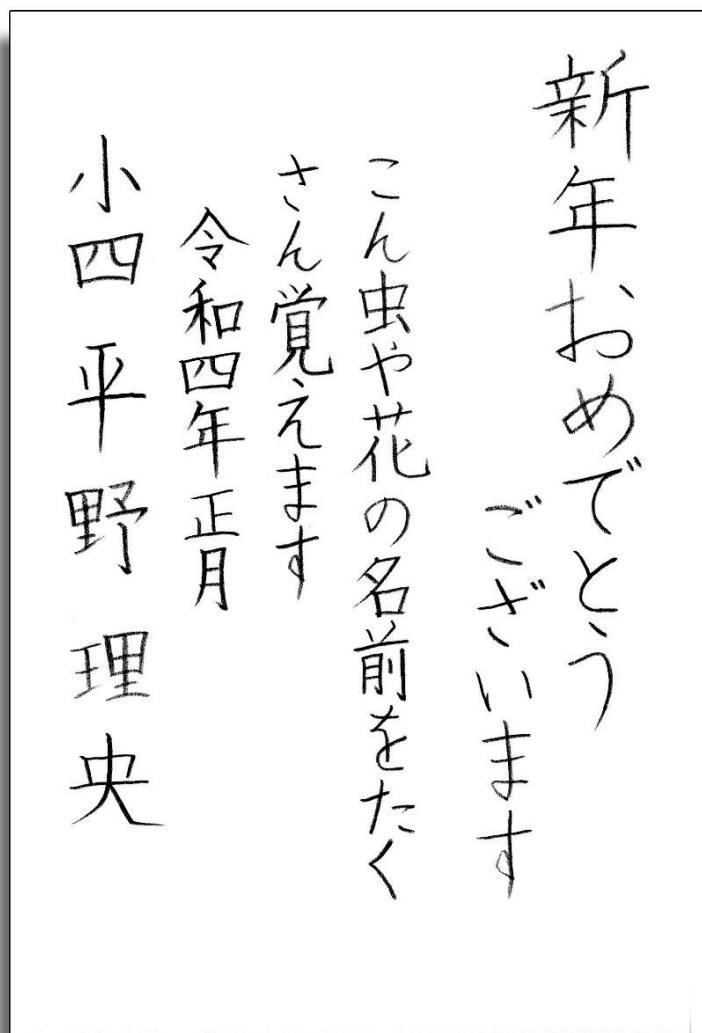 新年おめでとう
ございます
こん虫や花の名前をたく
さん覚えます
令和四年 正月
小四 平野 理央